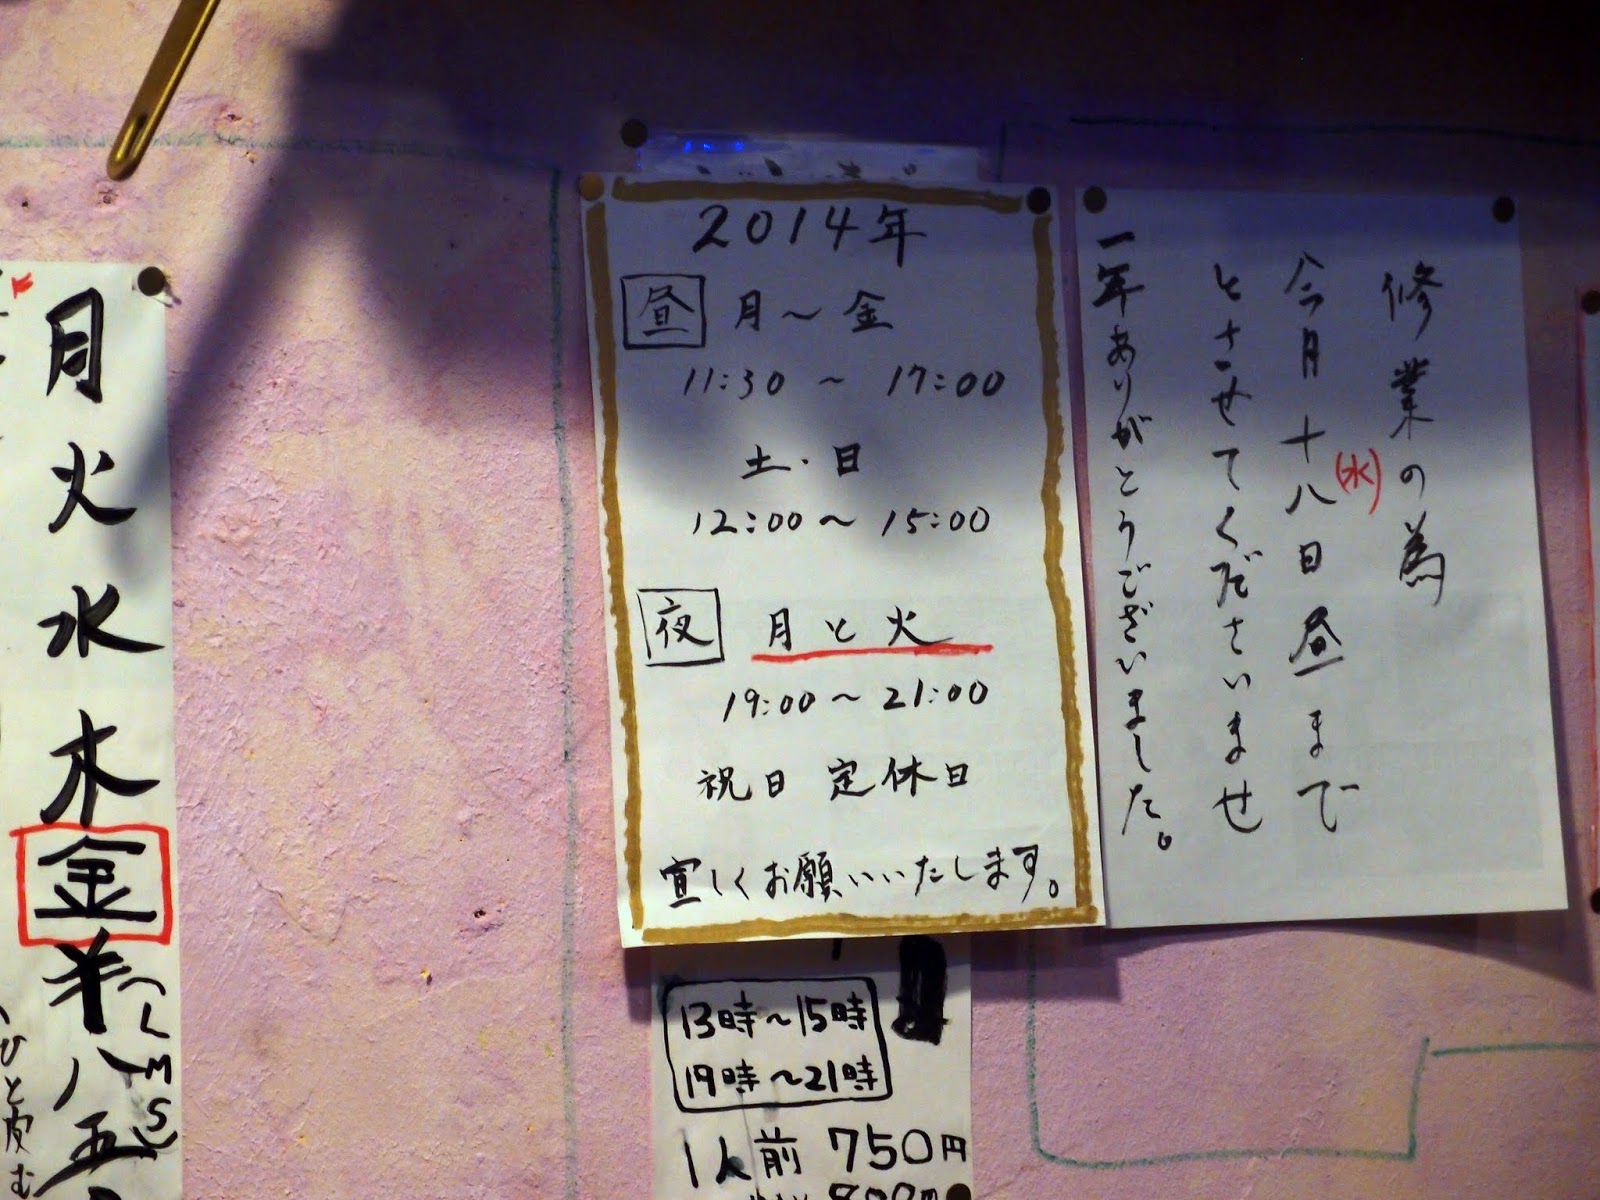 月火水木金
羊八五
(LMS)
ひと皮む
2014年
昼 月〜金
11:30 〜 17:00
土・日
12:00〜15:00
夜 月と火
19:00〜21:00
祝日 定休日
宜しくお願いいたします。
修業の為
今月十八日(水)昼まで
とさせてくださいませ
一年ありがとうございました。
13時〜15時
19時〜21時
1人前 750円